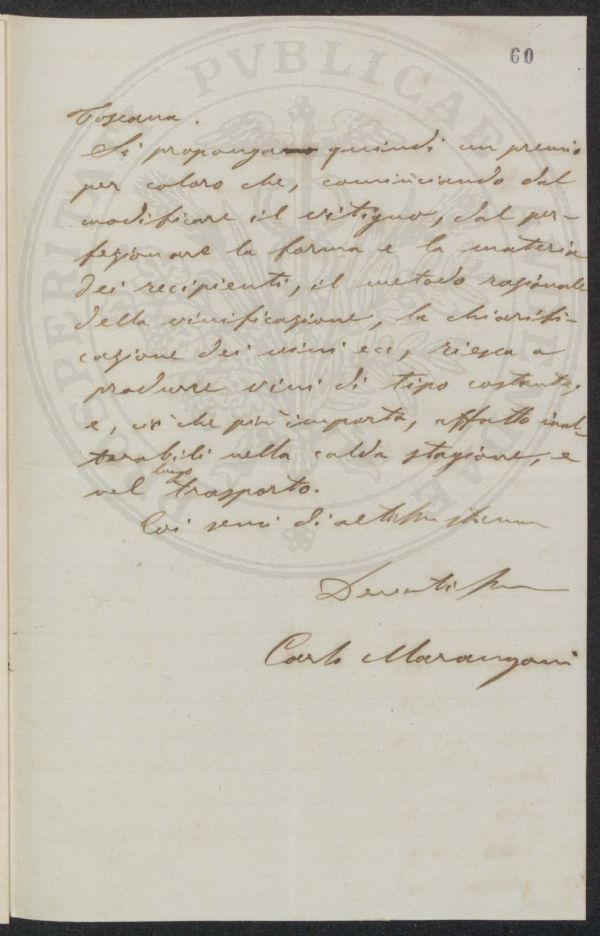 60
Toscana.
Si proponga quindi un premio
per coloro che, cominciando dal
modificare il vitigno, dal per-
fezionare la forma e la materia
dei recipienti, il metodo razionale
della vinificazione, la chiarifi-
cazione dei vini ec, riesca a
produrre vini di tipo costante,
e, ciò che più importa, affatto inal-
terabili nella calda stagione, e
nel lungo trasporto.
Coi sensi di altissma stima
Devotissmo
Carlo Marangoni
PROSPERITATI PVBLICAE AVGENDAE